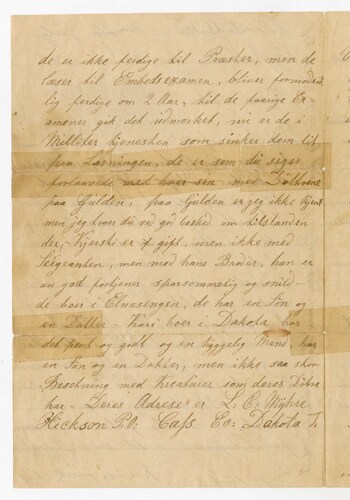 de er ikke ferdige til Præster, men de
læser til Embedsexamen, bliver formodent
lig ferdige om 2 Aar, til de forrige Ex-
amener gik det udmerket, nu er de i
Militær tjenesten som sinker dem lit
paa Læsningen, de er som du siger
forlovede med hver sin med Døttrene
paa Gulden, paa Gulden er jeg ikke kjent
men jeg tror du ved god besked om tilstanden
der, Kjersti er gift, men ikke med
Seigeanten, men med hans Broder, han er
en god fortjener sparsommelig og snild-
de boer i Elvesengen, de har en Søn og
en Datter - Kari boer i Dakota har
det pent og godt og en hyggelig Mand, har
en Søn og en Datter, men ikke saa stor
Besetning med kreaturer som deres Døtre
har - Deres Adrese er L. C. Myhre
Hickson P.O. Cass Co: Dakota T.